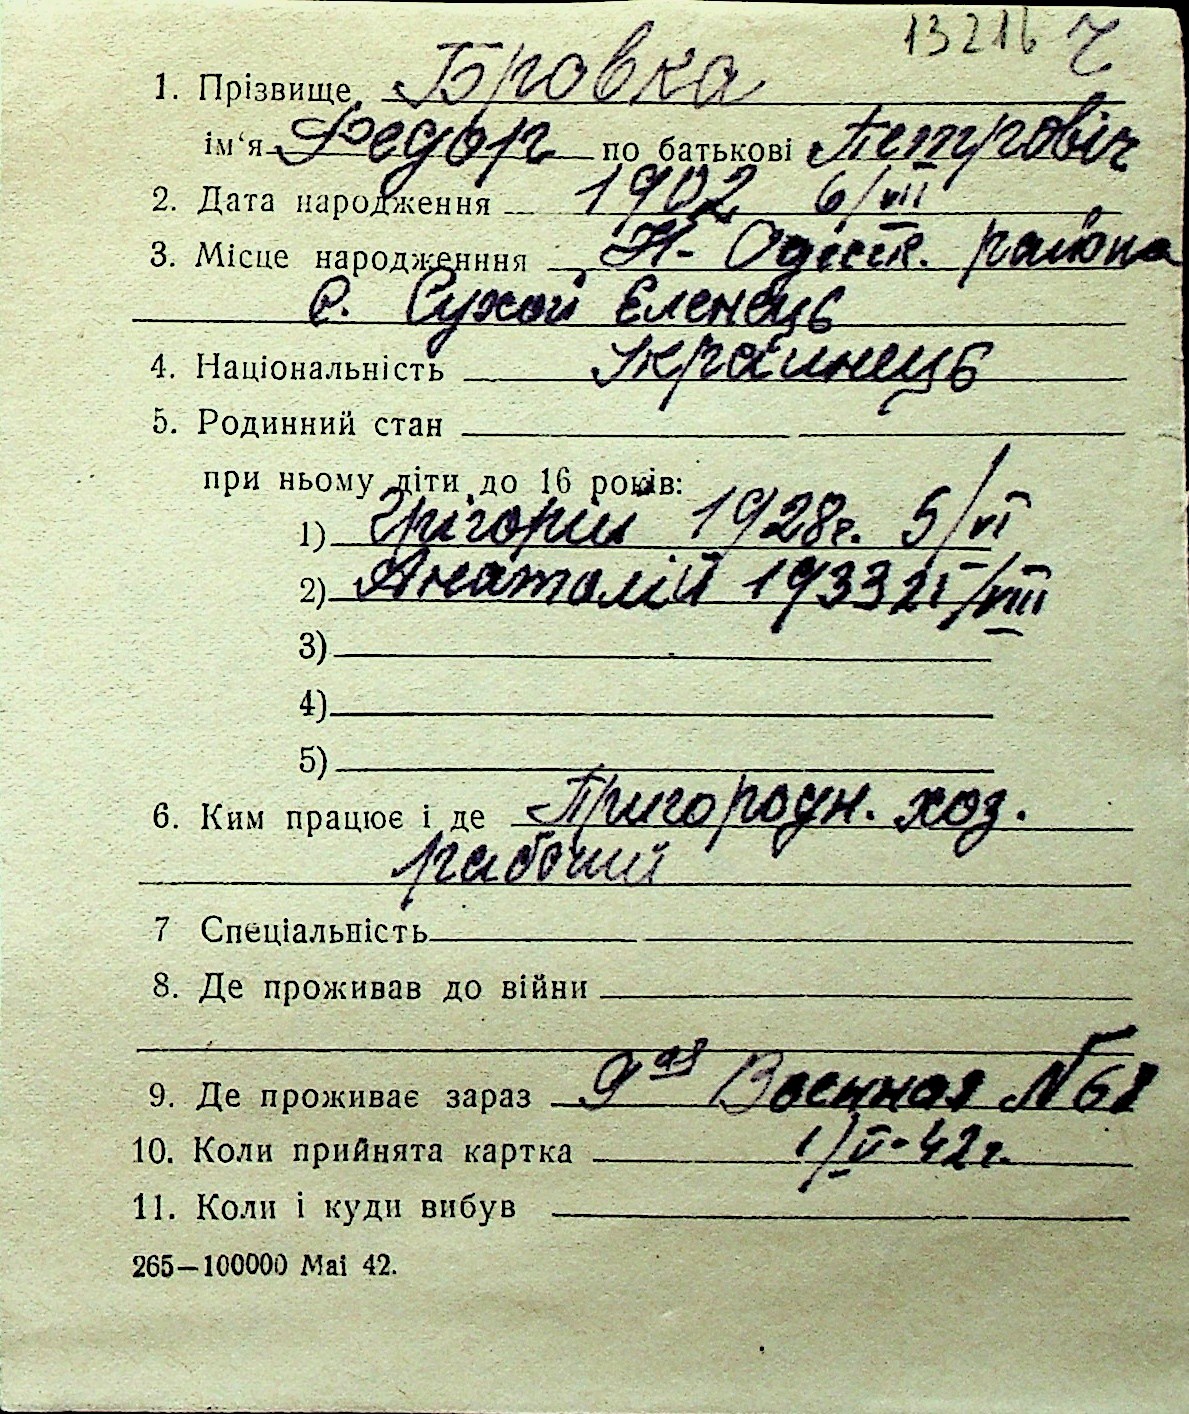 13216 Ч
1. Прізвище Бровка
ім‘я Федор по батькові Петровіч
2. Дата народження 1902 6/VII
3. Місце народженння Н- Одеск. района
с. Сухой Єленець
4. Національність Украинець
5. Родинний стан
при ньому діти до 16 років:
1) Грігорій 1928г. 5/VI
2) Анатолій 1933 21/VIII
3)
4)
5)
6. Ким працює і де Пригородн. хоз.
рабочий
7 Спеціальність
8. Де проживав до війни
9. Де проживає зараз 9ая Военная № 68
10. Коли прийнята картка 1/V-42г.
11. Коли і куди вибув
265—100000 Маі 42.